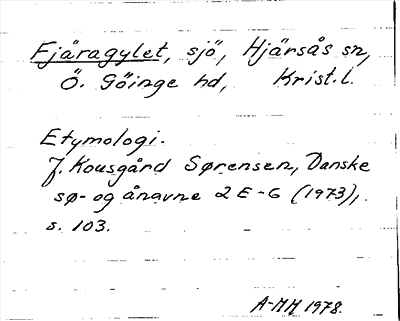 Fjäragylet, sjö, Hjärsås sn,
Ö. Göinge hd, Krist.l.
Etymologi.
J. Kousgård Sørensen, Danske
sø- og ånavne 2 E-G (1973),
s. 103.
A-MM 1978.